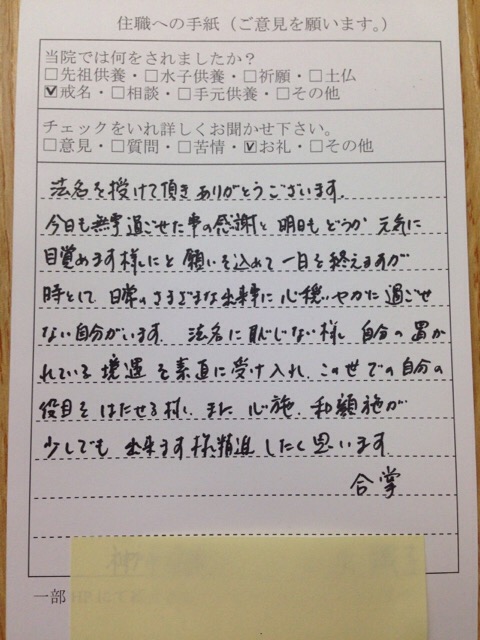 住職への手紙（ご意見を願います。）
当院では何をされましたか？
□先祖供養・□水子供養・□祈願・□土仏
☑戒名・□相談・□手元供養・□その他
チェックをいれ詳しくお聞かせ下さい。
□意見・□質問・□苦情・☑お礼・□その他
法名を授けて頂きありがとうございます。
今日も無事過ごせた事の感謝と明日もどうか元気に
目覚めます様にと願いを込めて一日を終えますが
時として日常のさまざまな出来事に心穏いやかに過ごせ
ない自分がいます。法名に恥じない様、自分の置か
れている境遇を素直に受け入れ、この世での自分の
役目をはたせる様に、また、心施、和顔施が
少しでも出来ます様精進したく思います
合掌
一部